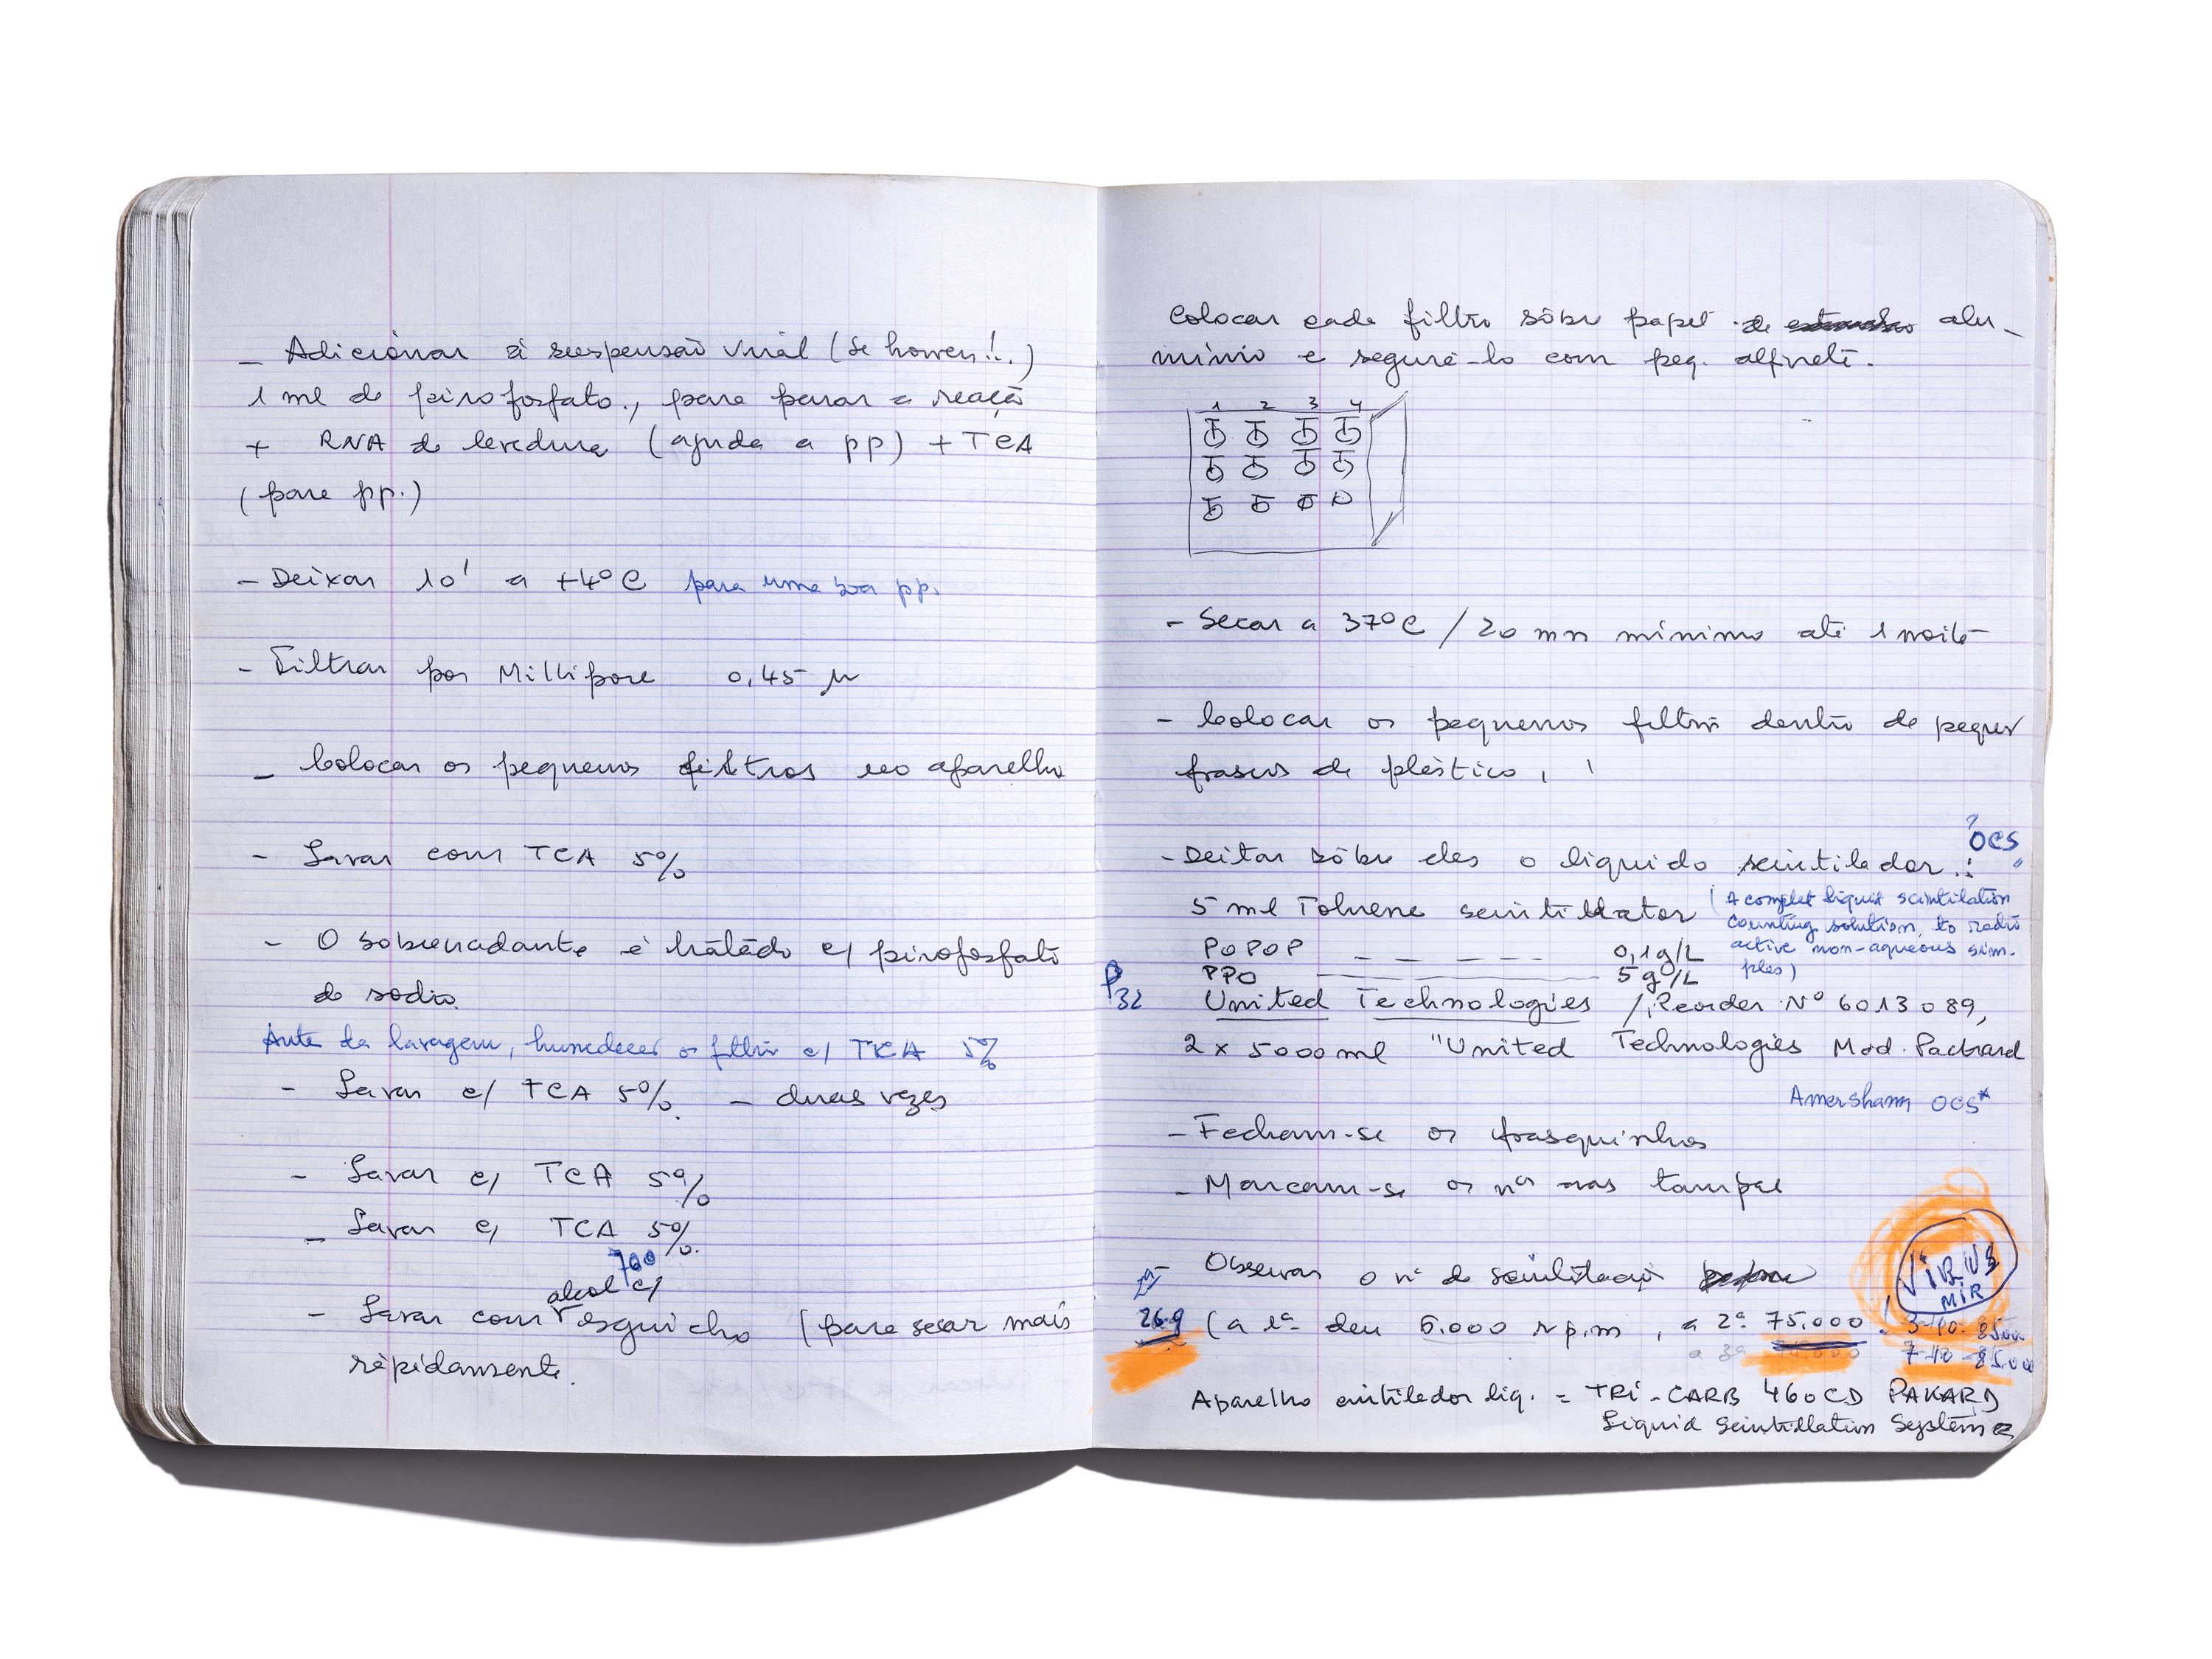 – Adicionar à suspensão viral (se houver!!.)
1 ml de pirofosfato., para parar a reação
+ RNA de levedura (ajuda a pp) + TCA
(para pp.)
– Deixar 10' a +4°C para uma boa pp.
– Filtrar por Millipore 0,45 μ
– Colocar os pequenos filtros no aparelho
– Lavar com TCA 5%
– O sobrenadante é tratado c/ pirofosfato
de sodio.
Ante da lavagem, humedecer o filtro c/ TCA 5%
– Lavar c/ TCA 5%. – duas vezes
– Lavar c/ TCA 5%
– Lavar c/ TCA 5%.
alcol 70º c/
– Lavar com esguicho (para secar mais
ràpidamente.
Colocar cada filtro sôbre papel de alu-
mínio e segurá-lo com peq. alfinete.
1 2 3 4
– Secar a 37°C / 20 mn mínimo até 1 noite
– Colocar os pequenos filtros dentro de
frascos de plástico,
? OCS
– Deitar sôbre eles o líquido scintilador..:
5 ml Toluene scintillator (A complet liquid scintilation
counting solution, to radio
POPOP – – – – – 0,1 g/L active non-aqueous sim-
ples)
PPO 5 g/L
P32 United Technologies / Reorder Nº 6013089,
2 x 5000 ml "United Technologies Mod. Packard
Amersham OCS*
– Fecham-se os frasquinhos
– Marcam-se os nºs nas tampas
– Observar o nº de scintilação
VIRUS
MIR
26.9 (a 1ª deu 6.000 r p.m, a 2ª 75.000. 3-10. 85.000
a 3ª 7-10 - 85.000
Aparelho cintilador liq. = TRI-CARB 460CD PAKARD
Liquid Scintillation System